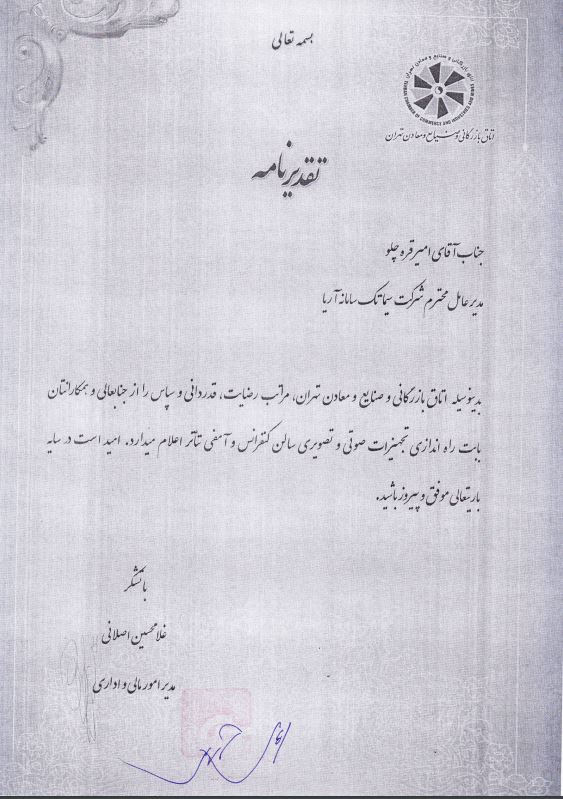 بسمه تعالی
اتاق بازرگانی و صنایع و معادن تهران
TEHRAN CHAMBER OF COMMERCE AND INDUSTRIES AND MINES
اتاق بازرگانی و صنایع و معادن تهران
تقدیرنامه
جناب آقای امیر قره چلو
مدیر عامل محترم شرکت سیماتک سامانه آریا
بدینوسیله اتاق بازرگانی و صنایع و معادن تهران، مراتب رضایت، قدردانی و سپاس را از جنابعالی و همکارانتان
بابت راه اندازی تجهیزات صوتی و تصویری سالن کنفرانس و آمفی تئاتر اعلام میدارد. امید است در سایه
باریتعالی موفق و پیروز باشید.
با تشکر
غلامحسین اصلانی
مدیر امور مالی و اداری